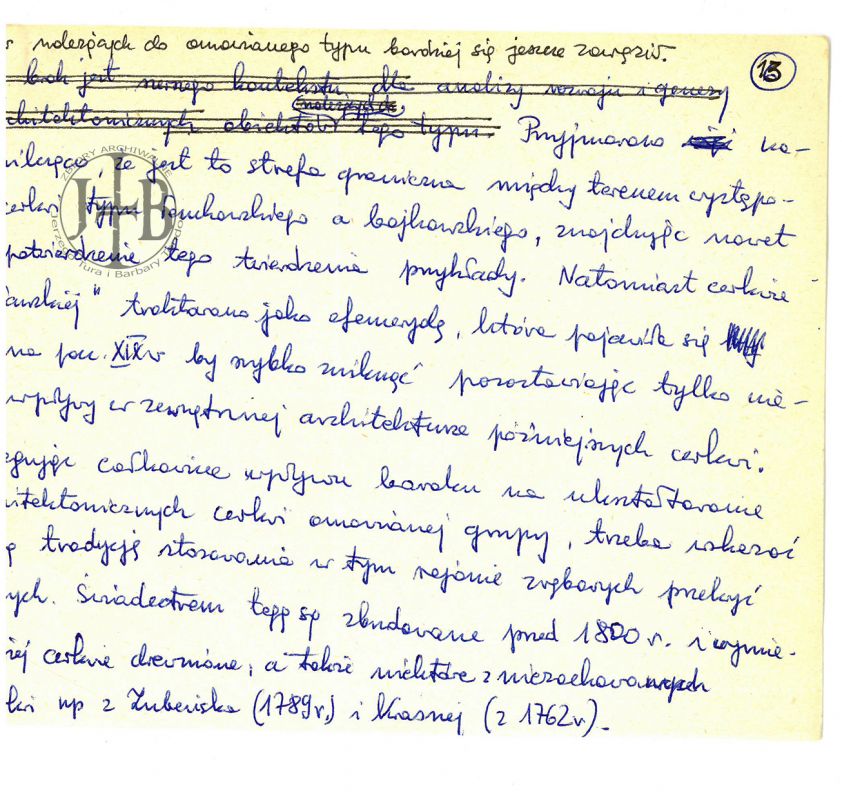 należących do omawianego typu bardziej się jeszcze zawęził.
13
brak jest nowego kontekstu dla analizy rozwoju i genezy
należących do
chitektonicznych obiektów tego typu. Przyjmowano na-
milcząco, że jest to strefa graniczna między terenem występo-
cerkwi typu łemkowskiego a bojkowskiego, znajdując nawet
potwierdzenie tego twierdzenia przykłady. Natomiast cerkwie
" traktowano jako efemerydę, która pojawiła się
na pocz. XIX w by szybko zniknąć pozostawiając tylko nie-
wpływy w zewnętrznej architekturze późniejszych cerkwi.
egując całkowicie wpływu baroku na ukształtowanie
itektonicznych cerkwi omawianej grupy, trzeba wskazać
tradycję stosowania w tym rejonie zrębowych przekryć
ych. Świadectwem tego są zbudowane przed 1800 r. i wymie-
żej cerkwie drewniane, a także niektóre z niezachowanych
kwi np z (1789r.) i Krasnej (z 1762r).
ZBIORY ARCHIWALNE
JTB
Jerzego Tura i Barbary Tondos